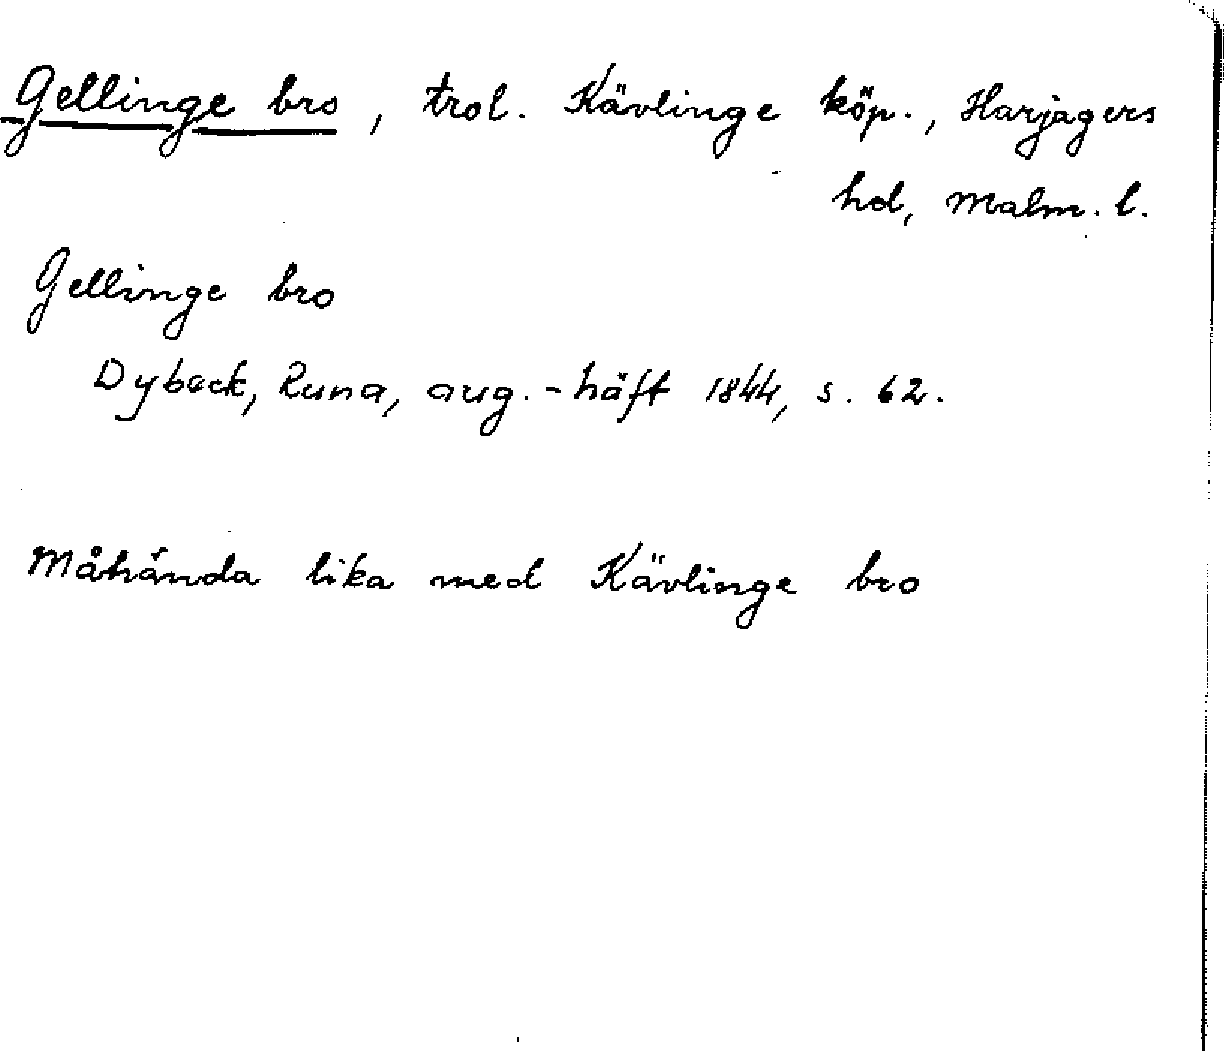 Gellinge bro, trol. Kävlinge köp., Harjagers
hd, Malm. l.
Gellinge bro
Dybeck, Runa, aug.-häft 1844, s. 62.
Måhända lika med Kävlinge bro